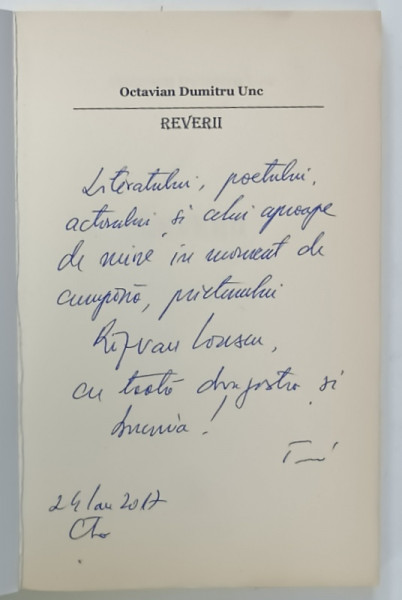 Octavian Dumitru Unc
REVERII
Literatului, poetului,
actorului și celui aproape
de mine în moment de
cumpănă, prietenului
Răzvan Ionescu,
cu toată dragostea și
24 Ian 2017